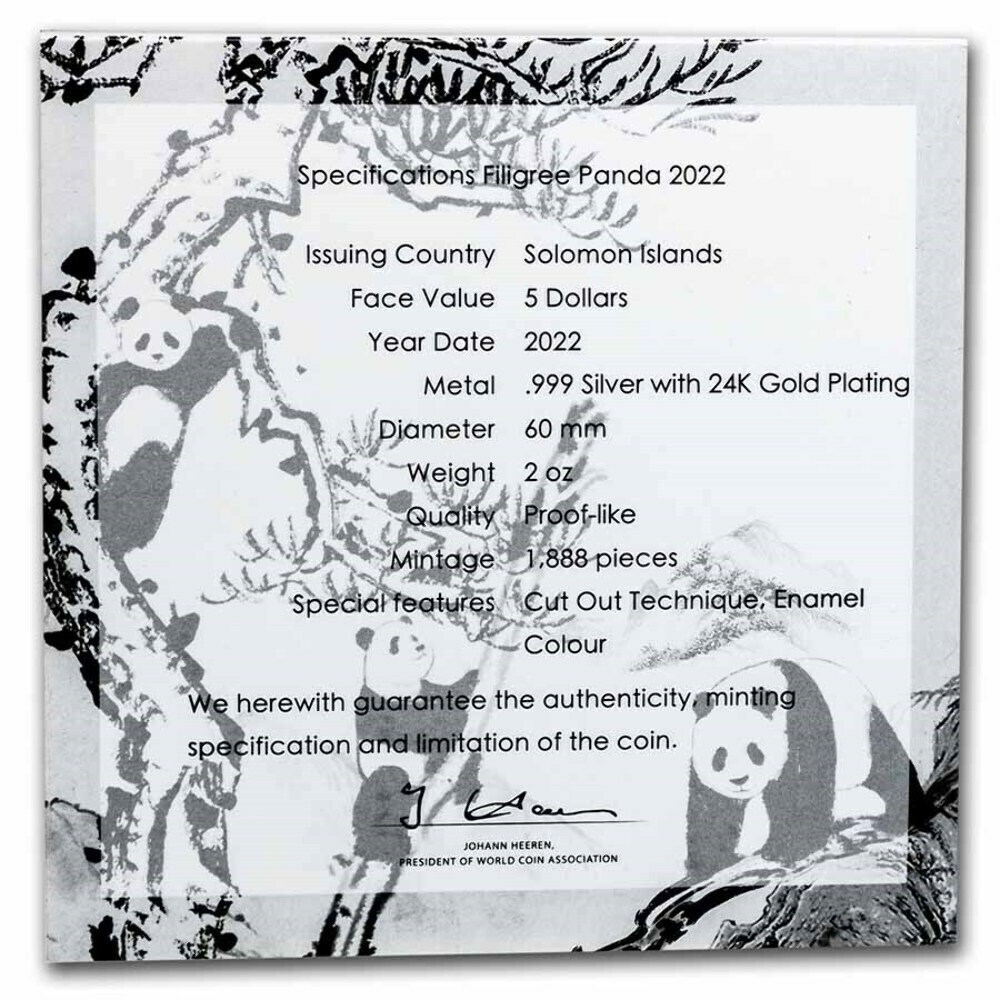 Specifications Filigree Panda 2022
Issuing Country Solomon Islands
Face Value 5 Dollars
Year Date 2022
Metal .999 Silver with 24K Gold Plating
Diameter 60 mm
Weight 2 oz
Quality Proof-like
Mintage 1,888 pieces
Special features Cut Out Technique, Enamel
Colour
We herewith guarantee the authenticity, minting
specification and limitation of the coin.
JOHANN HEEREN,
PRESIDENT OF WORLD COIN ASSOCIATION